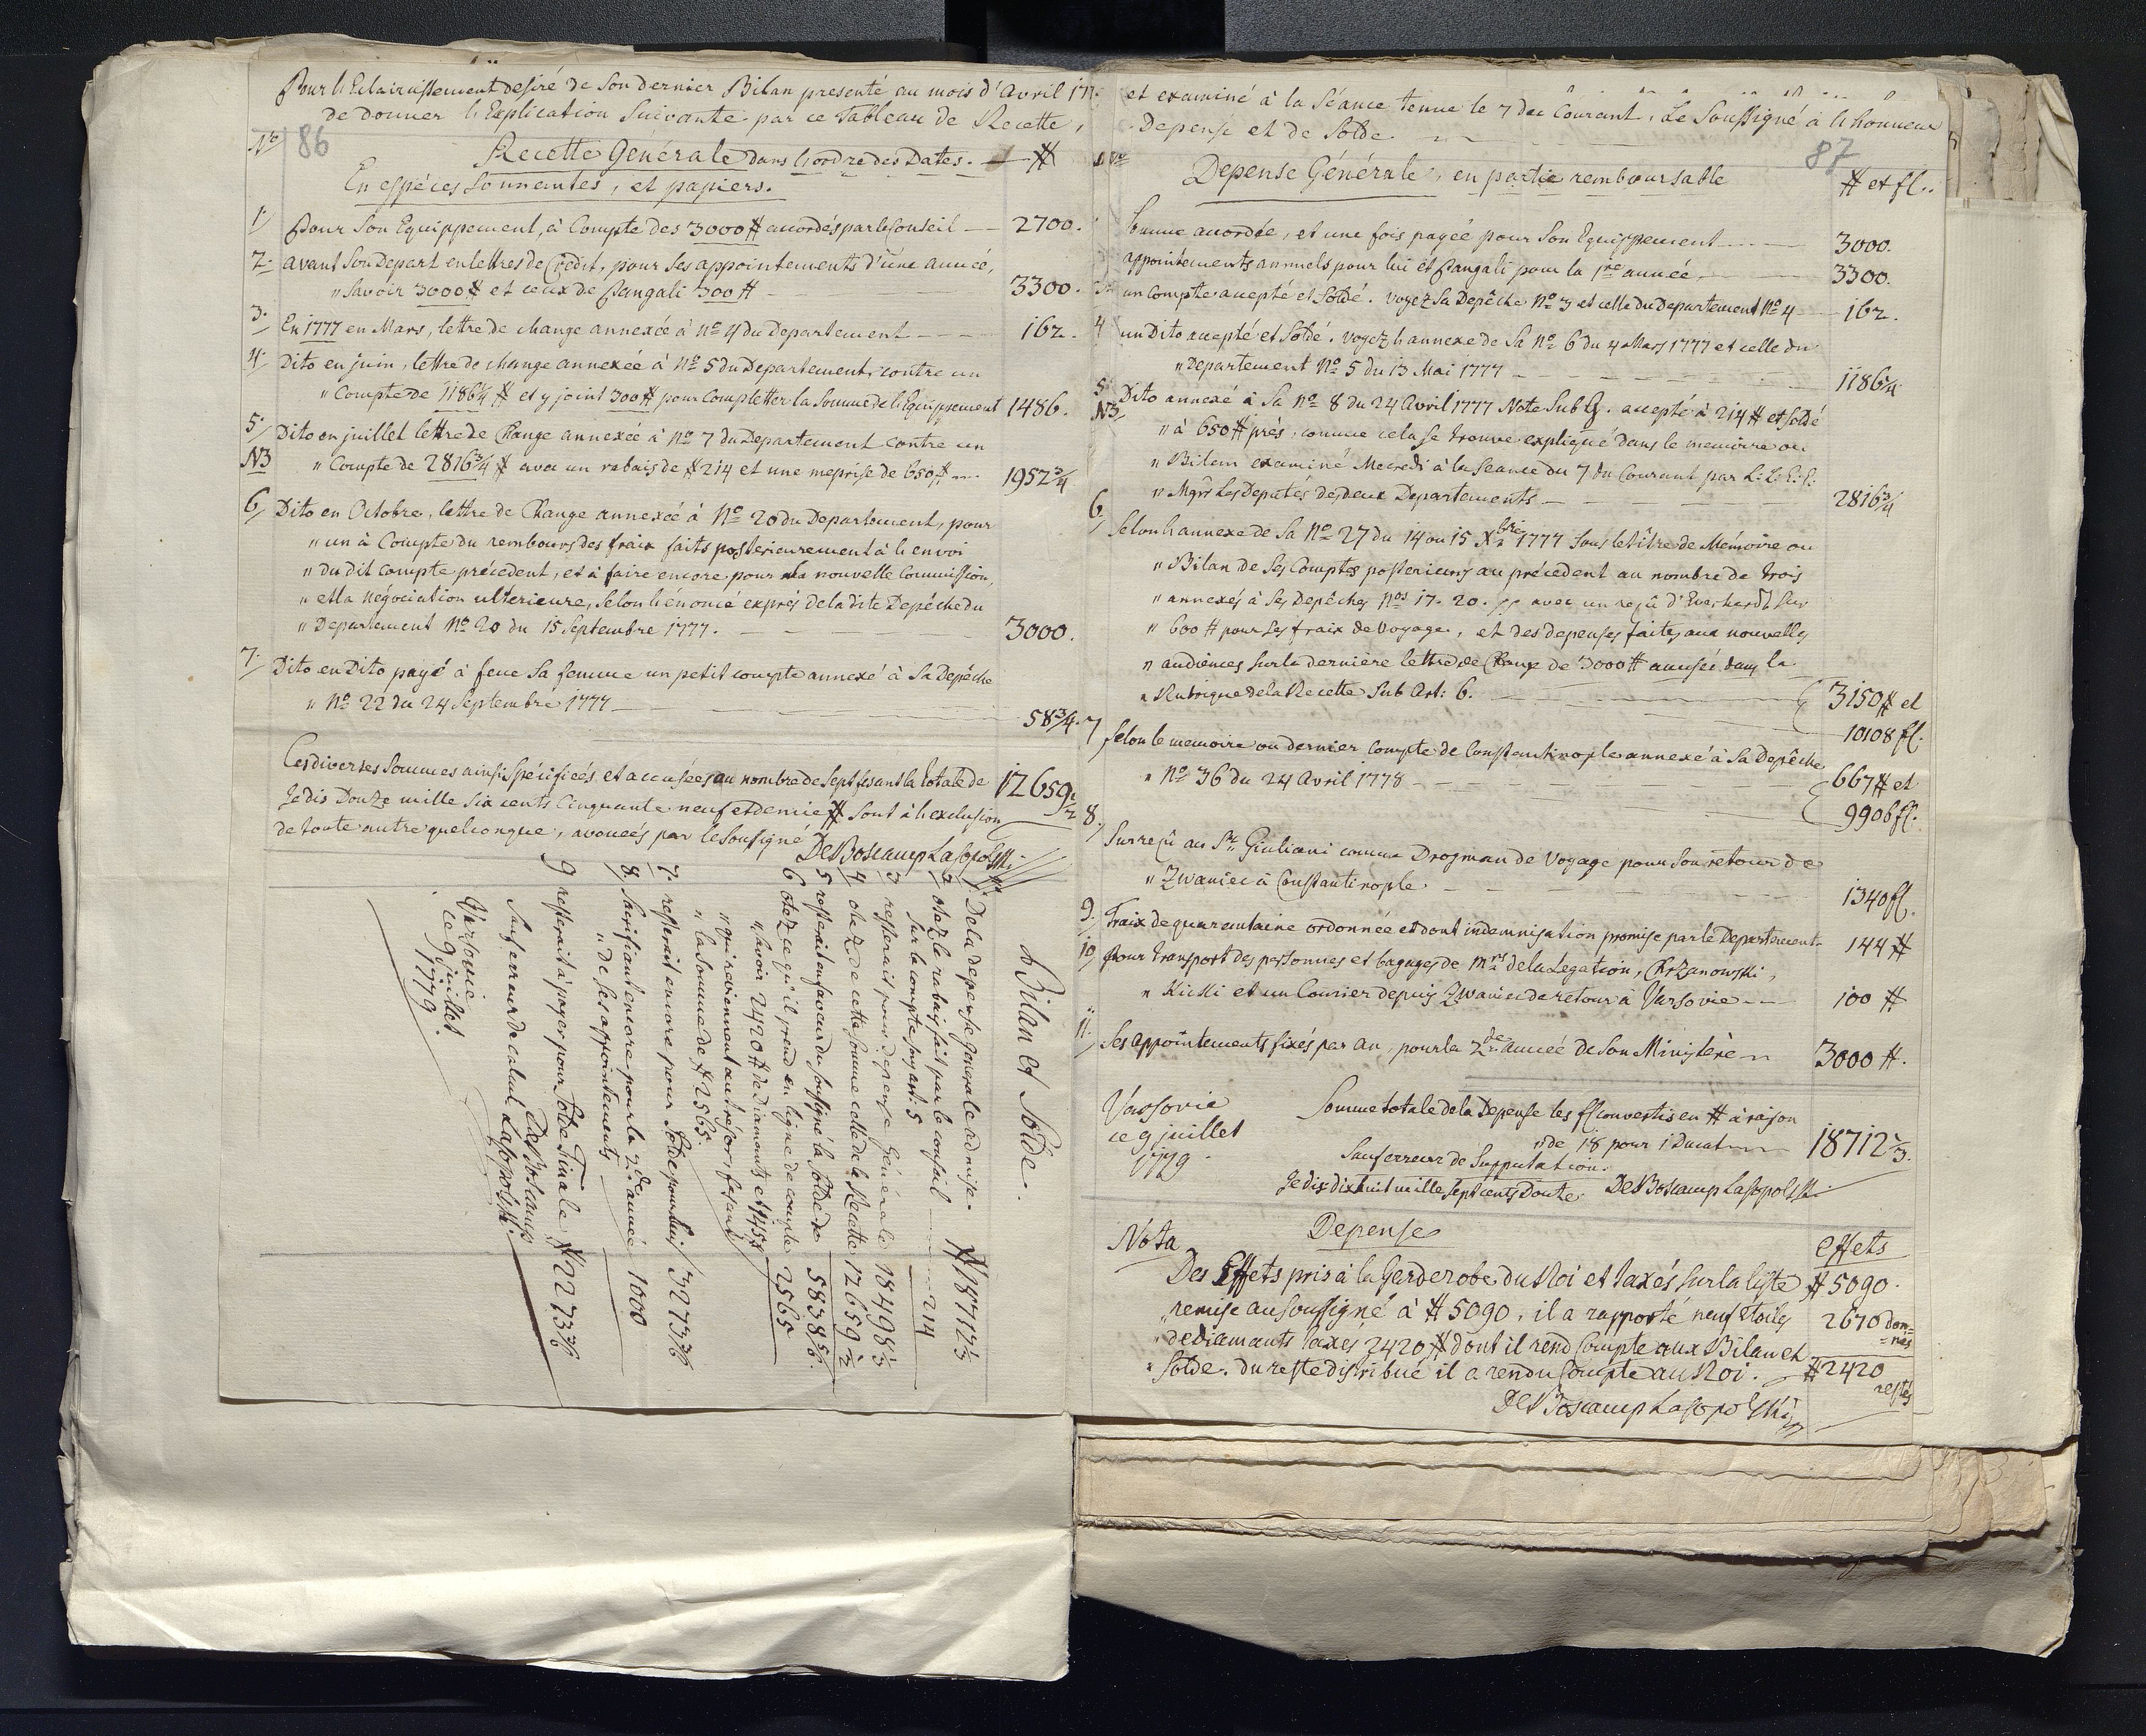 Pour l'Eclaircissement desiré de Son dernier Bilan presenté au mois d'Avril 17
de donner l'Explication Suivante par ce Tableau de Recette,
No 86
Recette Générale dans l'ordre des Dates. — #
En espéces Sonnantes, et papiers.
1. Pour Son Equippement, à Compte des 3000 # accordés par le Conseil — 2700.
2. avant Son Depart en lettres de Credit, pour Ses appointements d'une année,
" Savoir 3000 # et ceux de Pangali 300 # — 3300.
3. En 1777 en Mars, lettre de change annexée à No 4 du Departement — 162.
4. Dito en juin, lettre de change annexée à No 5 du Departement, contre un
" Compte de 1186¼ # et y joint 300 # pour Completter la Somme de l'Equippement 1486.
5. Dito en juillet lettre de Change annexée à No 7 du Departement contre un
NB " Compte de 2816¾ # avec un rabais de # 214 et une meprise de 650 # — 1952¾
6. Dito en Octobre, lettre de Change annexée à No 20 du Departement, pour
" un à Compte du rembours des fraix faits posterieurement à l'envoi
" du dit compte précedent, et à faire encore pour la nouvelle Commission,
" et la négociation ulterieure, Selon l'énoncé exprés de la dite Depéche du
" Departement No 20 du 15 Septembre 1777. — 3000.
7. Dito en Dito payé à feue Sa femme un petit compte annexé à Sa Depéche
" No 22 du 24 Septembre 1777 — 58¾.
Ces diverses Sommes ainsi Spécifiées et accusées au nombre de Sept fesant la totale de 12659½
Je dis Douze mille Six cents Cinquante neuf et demie # Sont à l'exclusion
de toute autre quelconque, avouées par le Soussigné
De Boscamp Lasopolski
Bilan et Solde.
1. De la depense generale admise. # 18712⅓
2. otez le rabais fait par le conseil
sur le compte sub art: 5 — 214
3. resterait pour depense Générale 18498⅓
4. otez de cette somme celle de la Recette 12659½
5. resterait en faveur du soussigné la Solde de 5838⅚.
6. otez ce qu'il prend en ligne de compte
" savoir 2420 # de diamants et 145 #
" qui reviennent au tresor, fesant
" la Somme de # 2565 — 2565
7. resterait encore pour Solde pour lui 3273⅚
8. Sacrifiant encore pour la 2de année
" de Ses appointements 1000
9 resterait à payer pour Solde Finale # 2273⅚
Sauf erreur de calcul
De Boscamp
Lasopolski.
Varsovie
ce 9 juillet
1779.
et examiné à la Séance tenue le 7 du Courant, Le Soussigné à l'honneur
Depense et de Solde.
87
Depense Générale, en partie remboursable # et fl.
Somme accordée, et une fois payée pour Son Equippement — 3000.
appointements annuels pour lui et Pangali pour la 1re année. — 3300.
3. un Compte accepté et Soldé. Voyez Sa Depêche No 3 et celle du Departement No 4 — 162.
4 un Dito accepté et Soldé. Voyez l'annexe de Sa No 6 du 4 Mars 1777 et celle du
" Departement No 5 du 13 Mai 1777 — 1186¼
5. Dito annexé à Sa No 8 du 24 Avril 1777 Note Sub G. accepté à 214 # et Soldé
NB " à 650 # prés, comme cela se trouve expliqué dans le memoire ou
" Bilan examiné Mecredi à la Seance du 7 du Courant par L. L. E. E.
" Mgrs Les Deputés des deux Departements — 2816¾
6. Selon l'annexe de Sa No 27 du 14 ou 15 Xbre 1777 Sous le titre de Mémoire ou
" Bilan de Ses Comptes posterieurs au précedent au nombre de trois
" annexés à Ses Depêches Nos 17. 20. avec un reçû d'Everhardt Sur
" 600 # pour Ses fraix de Voyage, et des depenses faites aux nouvelles
" audiences Sur la derniére lettre de Change de 3000 # accusée dans la
" Rubrique de la Recette Sub Art: 6. — 3150 # et
10108 fl.
7 Selon le memoire ou dernier Compte de Constantinople annexé à Sa Depêche
" No 36 du 24 Avril 1778 — 667 # et
9906 fl.
8. Sur reçû au Sr Giuliani comme Drogman de Voyage pour Son retour de
" Zwaniec à Constantinople. — 1340 fl.
9. Fraix de quarantaine ordonnée et dont indemnisation promise par le Departement 144 #
10. Pour transport des personnes et bagages de Mrs de la Legation, Chrzanowski,
" Kicki et un Courier depuis Zwaniec de retour à Varsovie — 100 #
11. Ses appointements fixés par an, pour la 2de année de Son Ministère 3000 #.
Varsovie
ce 9 juillet
1779.
Somme totale de la Depense les fl convertis en # à raison
" de 18 pour 1 Ducat — 18712⅓.
Sauf erreur de Supputation.
Je dis dix huit mille Sept cents Douze. De Boscamp Lasopolski
Nota Depense effets
Des Effets pris à la Garderobe du Roi et taxés Sur la liste # 5090.
" remise au Soussigné à # 5090, il a rapporté neuf Etoiles 2670 don=
=nés
" de diamants taxés 2420 # dont il rend Compte aux Bilan et
" Solde. du reste distribué il a rendu Compte au Roi. # 2420
restés
De Boscamp Lasopolski